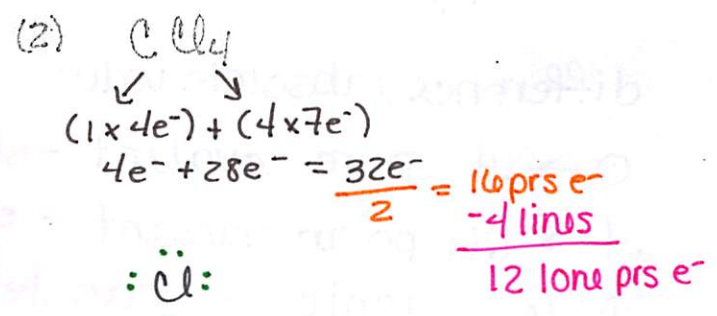 (2) CCl4
(1 x 4e-) + (4 x 7e-)
4e- + 28e- = 32e-/2 = 16 prs e-
-4 lines
12 lone prs e-
:Cl: